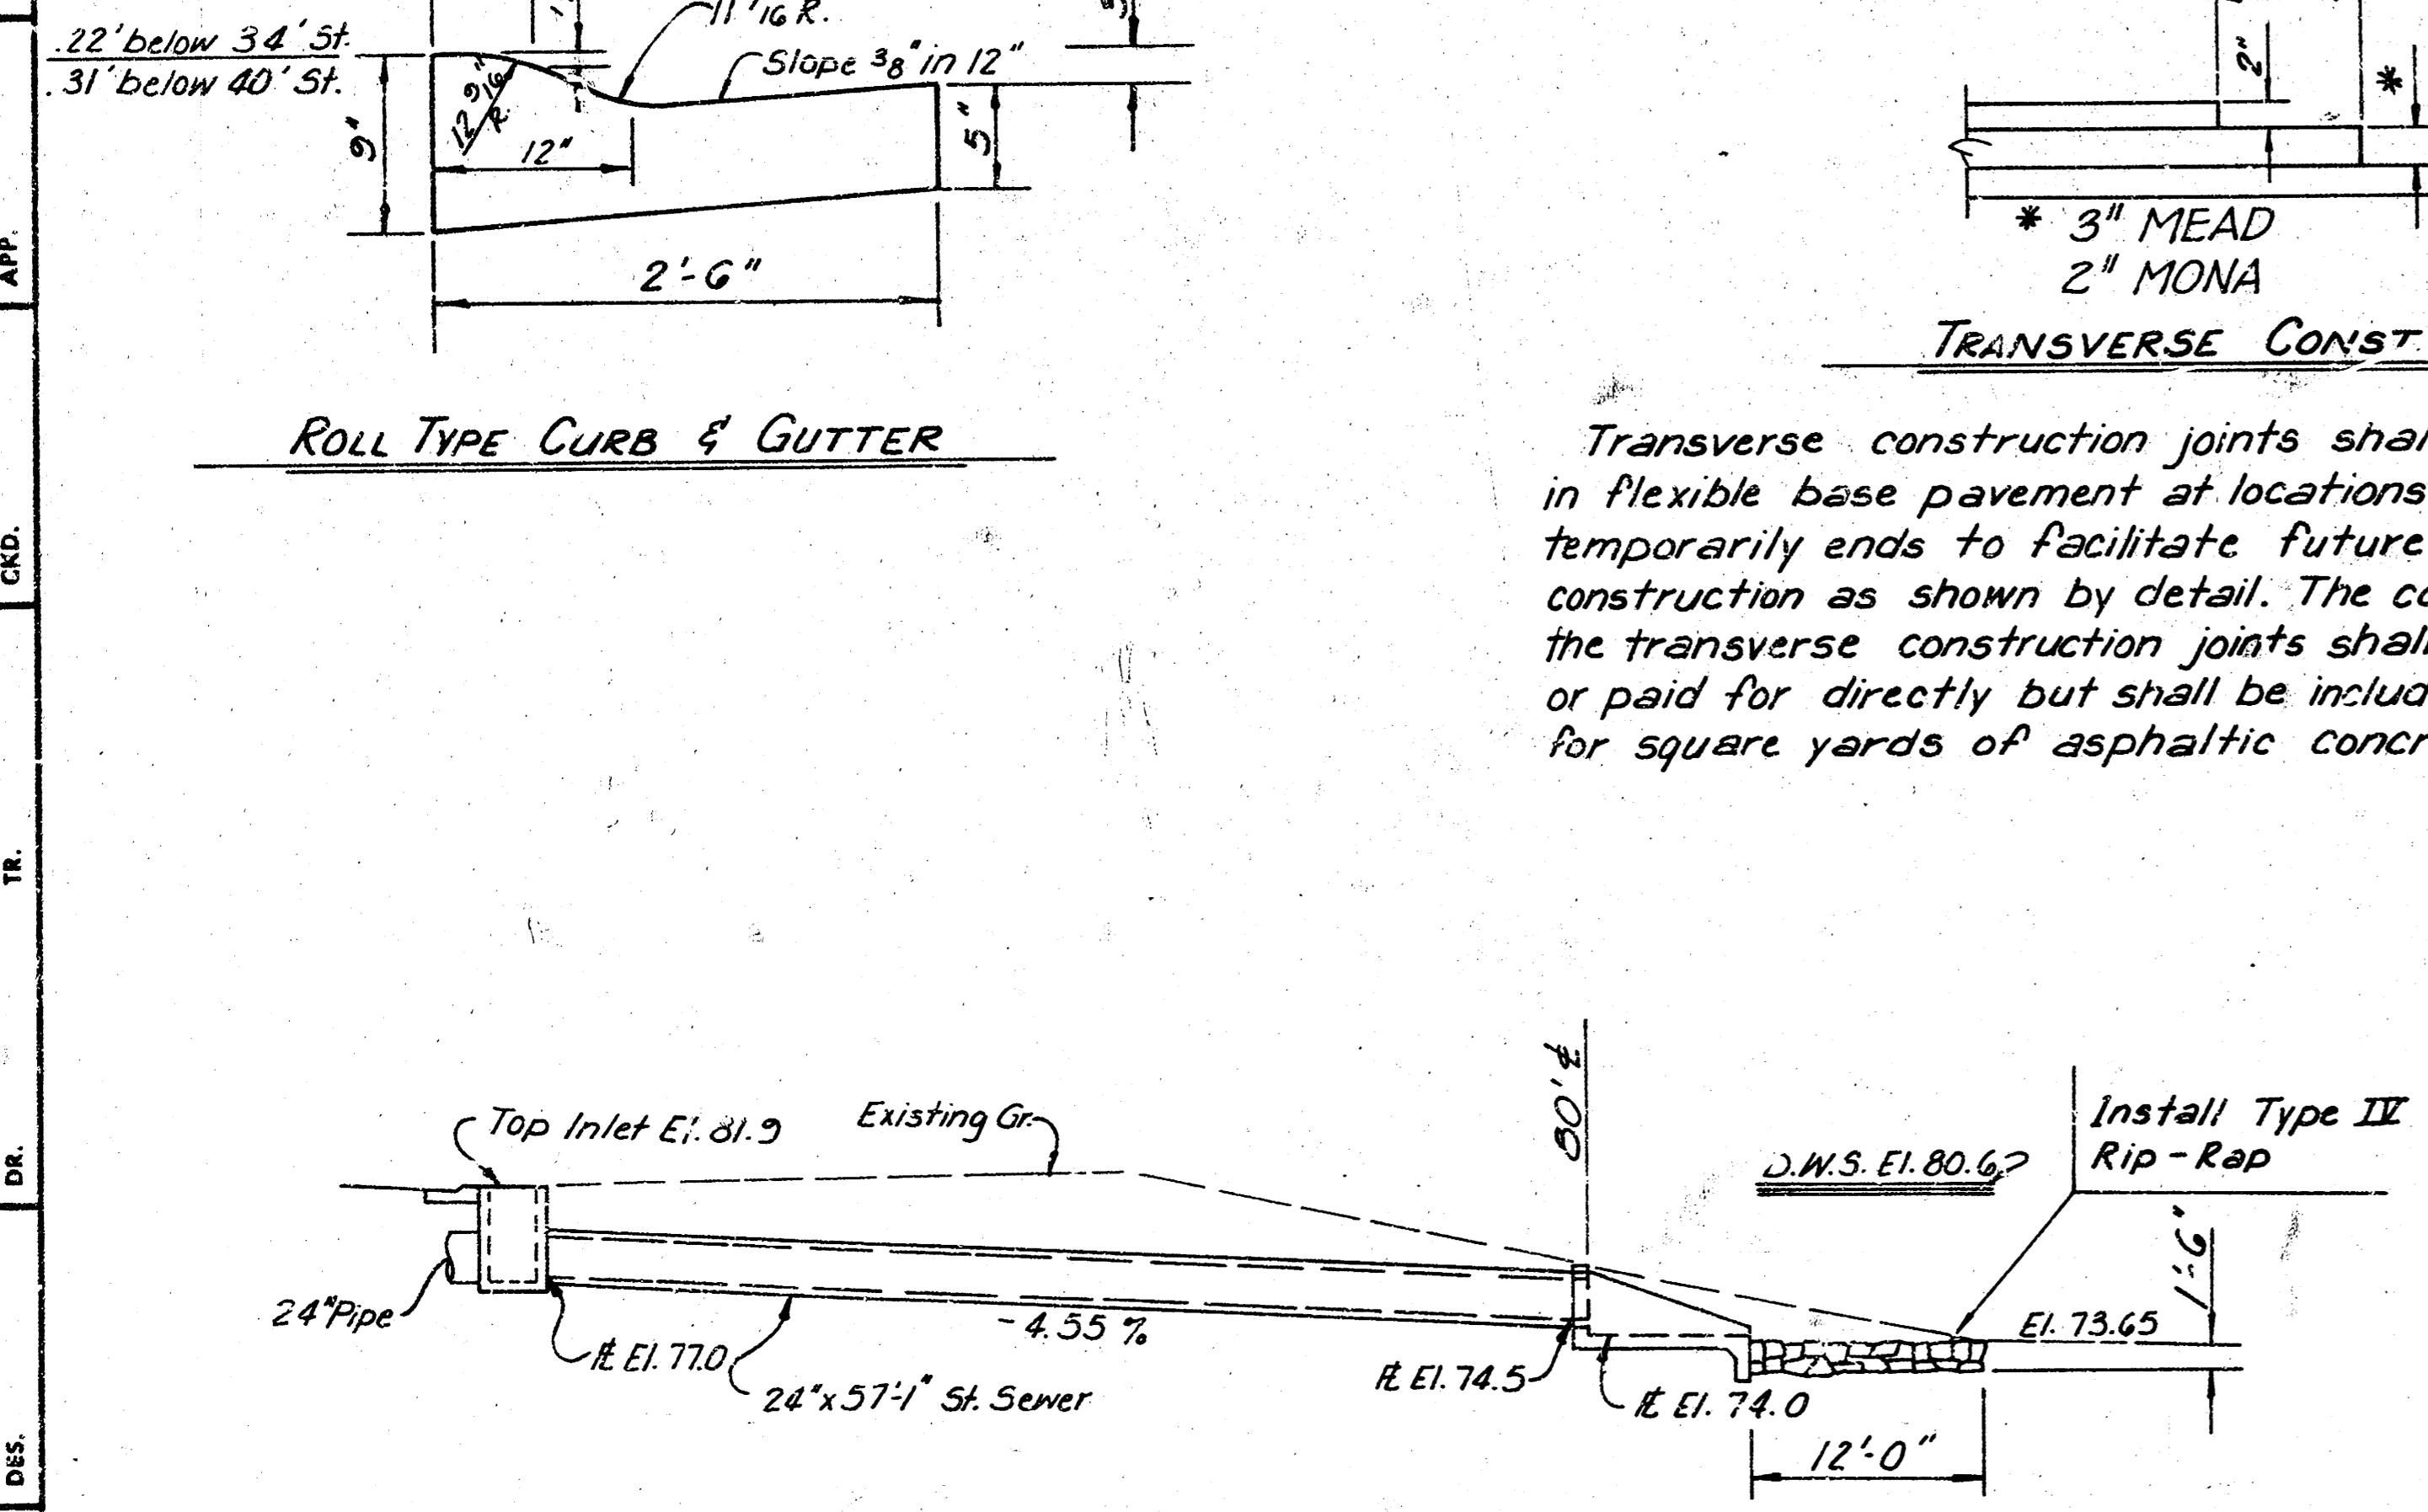 .22' below 34' St.
.31' below 40' St.
11 1/16 R.
Slope 3/8" in 12"
12 9/16" R.
9"
12"
5"
2'-6"
ROLL TYPE CURB & GUTTER
2"
*
* 3" MEAD
2" MONA
TRANSVERSE CONST
Transverse construction joints shal
in flexible base pavement at locations
temporarily ends to facilitate future
construction as shown by detail. The co
the transverse construction joints shall
or paid for directly but shall be includ
for square yards of asphaltic concr
Top Inlet El. 81.9
Existing Gr.
80' ⅊
D.W.S. El. 80.6?
Install Type IV
Rip-Rap
1'-6"
24" Pipe
℄ El. 77.0
24" x 57'-1" St. Sewer
-4.55 %
℄ El. 74.5
℄ El. 74.0
El. 73.65
12'-0"
APP.
CKD.
TR.
DR.
DES.